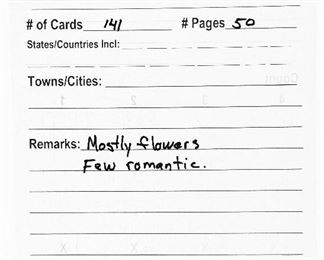 # of Cards 141 # Pages 50
States/Countries Incl:
Towns/Cities:
Remarks: Mostly flowers
Few romantic.